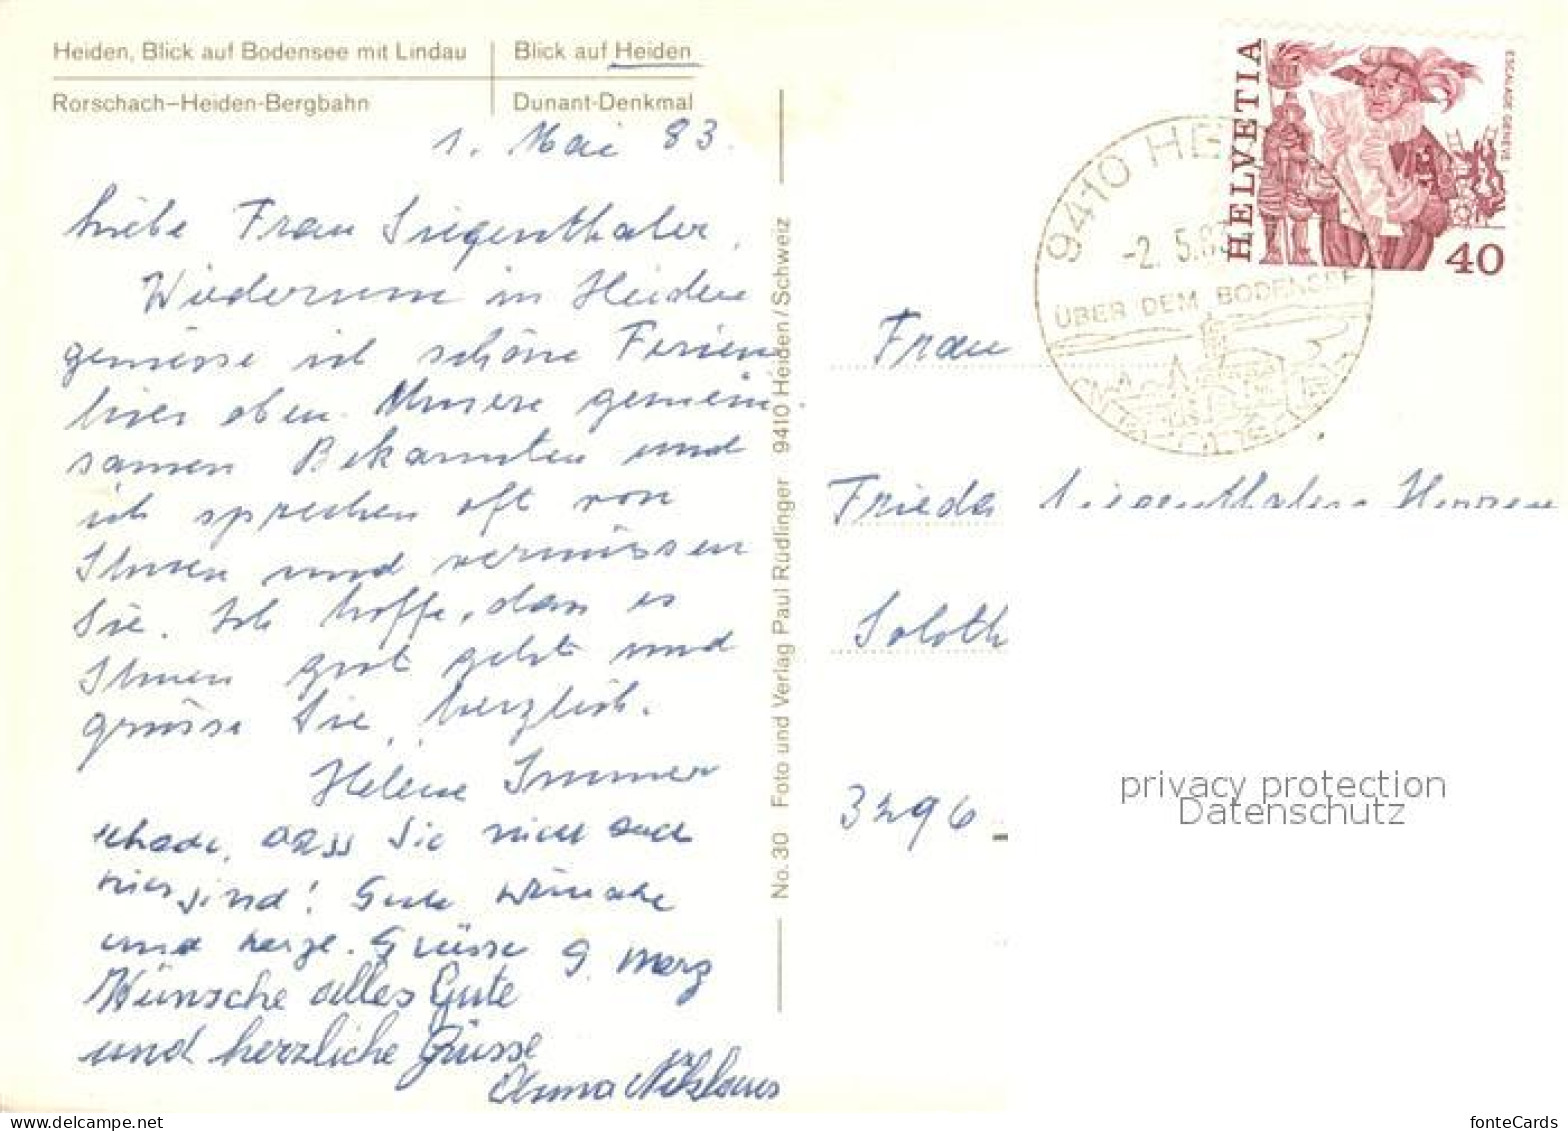 Heiden, Blick auf Bodensee mit Lindau
Rorschach–Heiden-Bergbahn
Blick auf Heiden
Dunant-Denkmal
1. Mai 83.
Liebe Frau Siegenthaler,
Wiederum in Heiden
geniesse ich schöne Ferien
hier oben. Unsere gemein-
samen Bekannten und
ich sprechen oft von
Ihnen und vermissen
Sie. Ich hoffe, dass es
Ihnen gut geht und
grüsse Sie herzlich.
Helene Immer
schade, dass Sie nicht auch
hier sind! Gute Wünsche
und herzl. Grüsse G. Merz
Wünsche alles Gute
und herzliche Grüsse
Anna Niklaus
No. 30 Foto und Verlag Paul Rüdlinger 9410 Heiden/Schweiz
HELVETIA
ESCALADE GENEVE
40
9410 HE
-2. 5.83
ÜBER DEM BODENSEE
Frau
Frieda Siegenthaler-Herren
Soloth
3296
privacy protection
Datenschutz
fonteCards